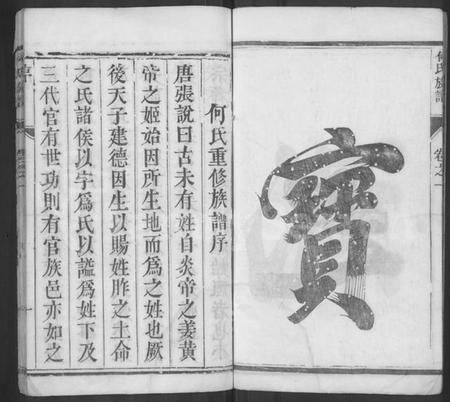 何氏族譜
卷之一
寶
何氏重修族譜序
唐張說曰古未有姓自炎帝之姜黄
帝之姬始因所生地而爲之姓也厥
後天子建德因生以賜姓胙之土命
之氏諸侯以字爲氏以謚爲姓下及
三代官有世功則有官族邑亦如之